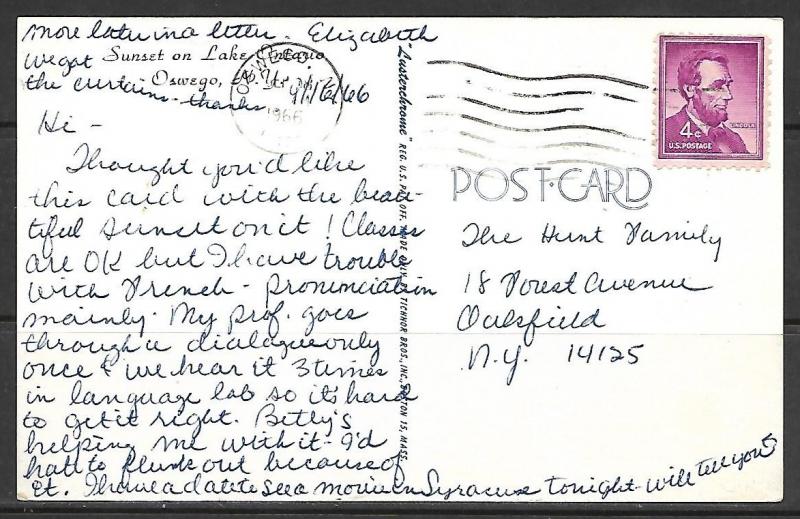 more later in a letter. Elizabeth
we got
the curtains - thanks
Sunset on Lake Ontario
Oswego,
9/16/66
OSWEGO
1966
Hi -
Thought you'd like
this card with the beau-
tiful sunset on it! Classes
are OK but I have trouble
with French - pronunciation
mainly. My prof. goes
through a dialogue only
once & we hear it 3 times
in language lab so it's hard
to get it right. Betty's
helping me with it - I'd
hate to flunk out because of
it. I have a date to see a movie in Syracuse tonight - will tell you
"Lusterchrome" REG. U.S. PAT. OFF. MADE ONLY BY TICHNOR BROS., INC., BOSTON 15, MASS.
LINCOLN
4¢
U.S. POSTAGE
POST CARD
The Hunt Family
18 Forest Avenue
Oaksfield
N.Y. 14125